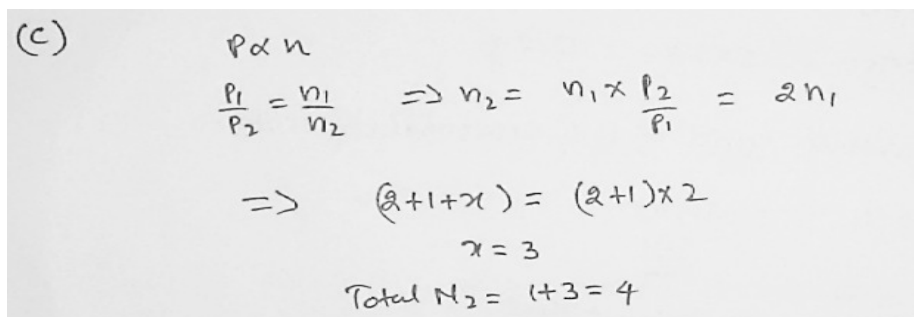 (C)
P α n
P1/P2 = n1/n2 => n2 = n1 x P2/P1 = 2n1
=> (2+1+x) = (2+1)x2
x = 3
Total N2 = 1+3 = 4